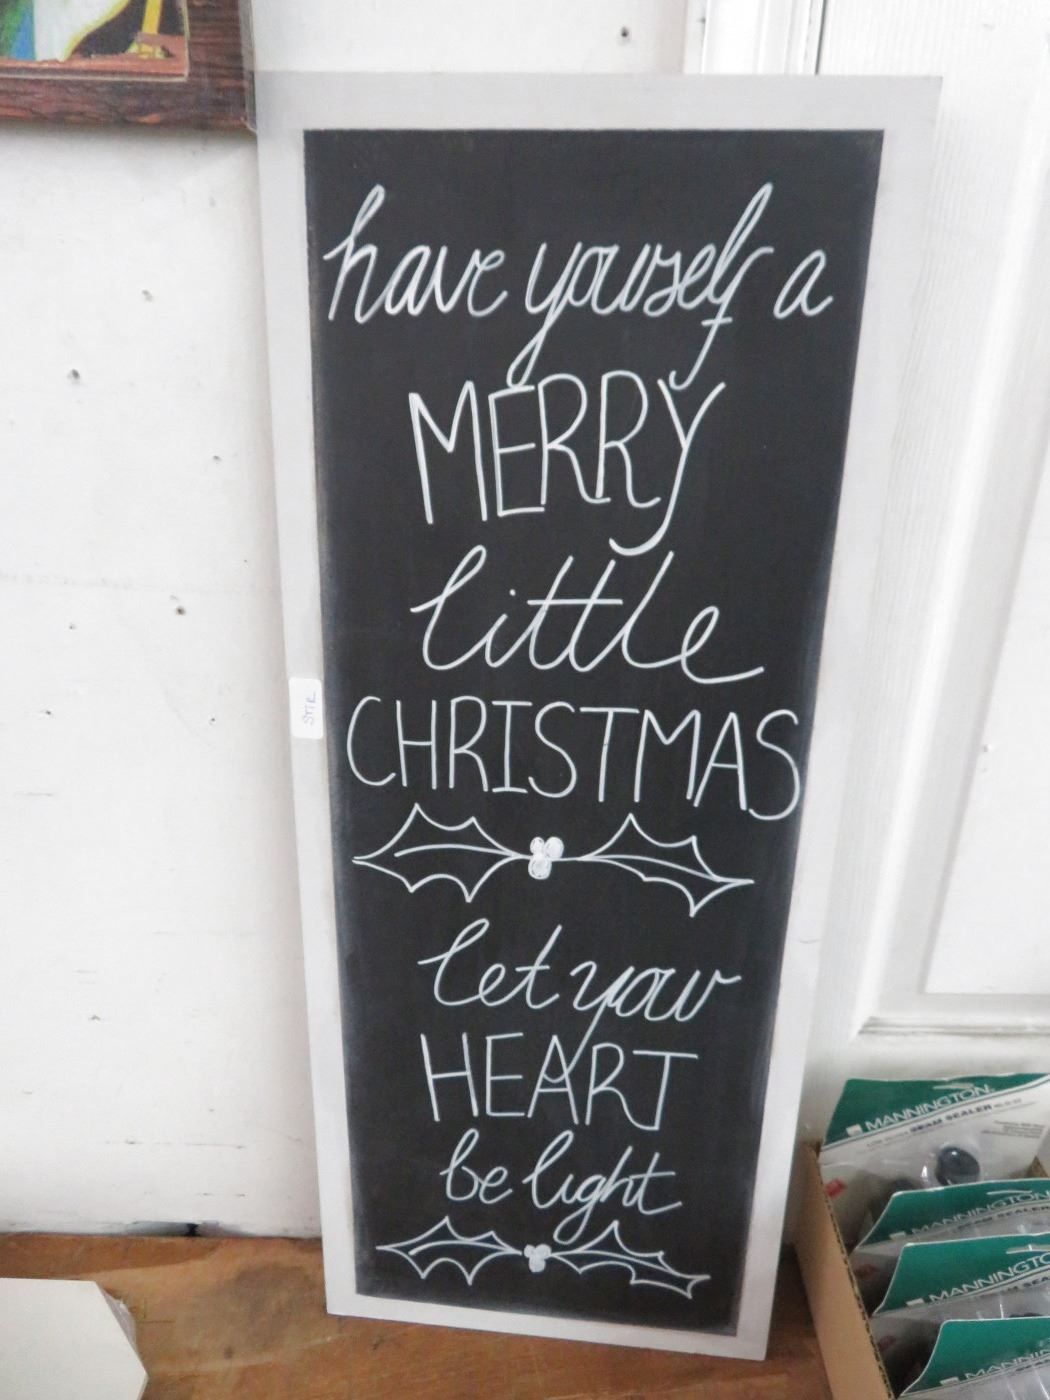 have yourself a
MERRY
little
CHRISTMAS
let your
HEART
be light
STIR
MANNINGTON
SEAM SEALER
MANNINGTON
MANNINGTON
MANNINGTON